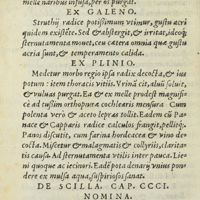 melle naribus infusa, per os purgat.
EX GALENO.
Struthij radice potissimum vtimur, gustu acri
quidem existēte. Sed & abstergit, & irritat, ideoq́;
sternutamenta mouet, ceu cætera omnia quæ gustu
acria sunt, & temperamento calida.
EX PLINIO.
Medetur morbo regio ipsa radix decocta, & ius
potum: item thoracis vitiis. Vrinã ciet, aluũ soluit,
& vuluas purgat. Ea & ex melle prodest magnifi-
ce ad tusim orthopnœa cochlearis mensura Cum
polenta verò & aceto lepras tollit. Eadem cū Pa-
nace & Capparis radice calculos frangit, pellitq́;.
Panos discutit, cum farina hordeacea & vino de-
cocta. Miscetur & malagmatis & collyriis, clarita-
tis causa. Ad sternutamenta vtilis inter pauca. Lie-
ni quoque ac iecinori. Eadē pota denarij vnius pon-
dere ex mulsa aqua, suspiriosos sanat.
DE SCILLA. CAP. CCCI.
NOMINA.